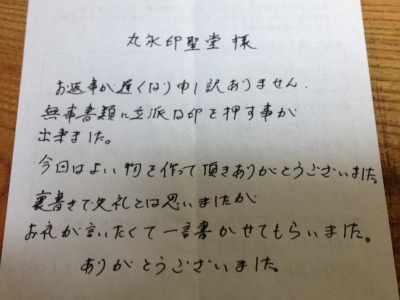 丸氷印聖堂 様
お返事が遅くなり申し訳ありません.
無事書類に立派な印を押す事が
出来ました。
今回はよい物を作って頂きありがとうございました。
裏書きで失礼とは思いましたが
お礼が言いたくて一言書かせてもらいました。
ありがとうございました。